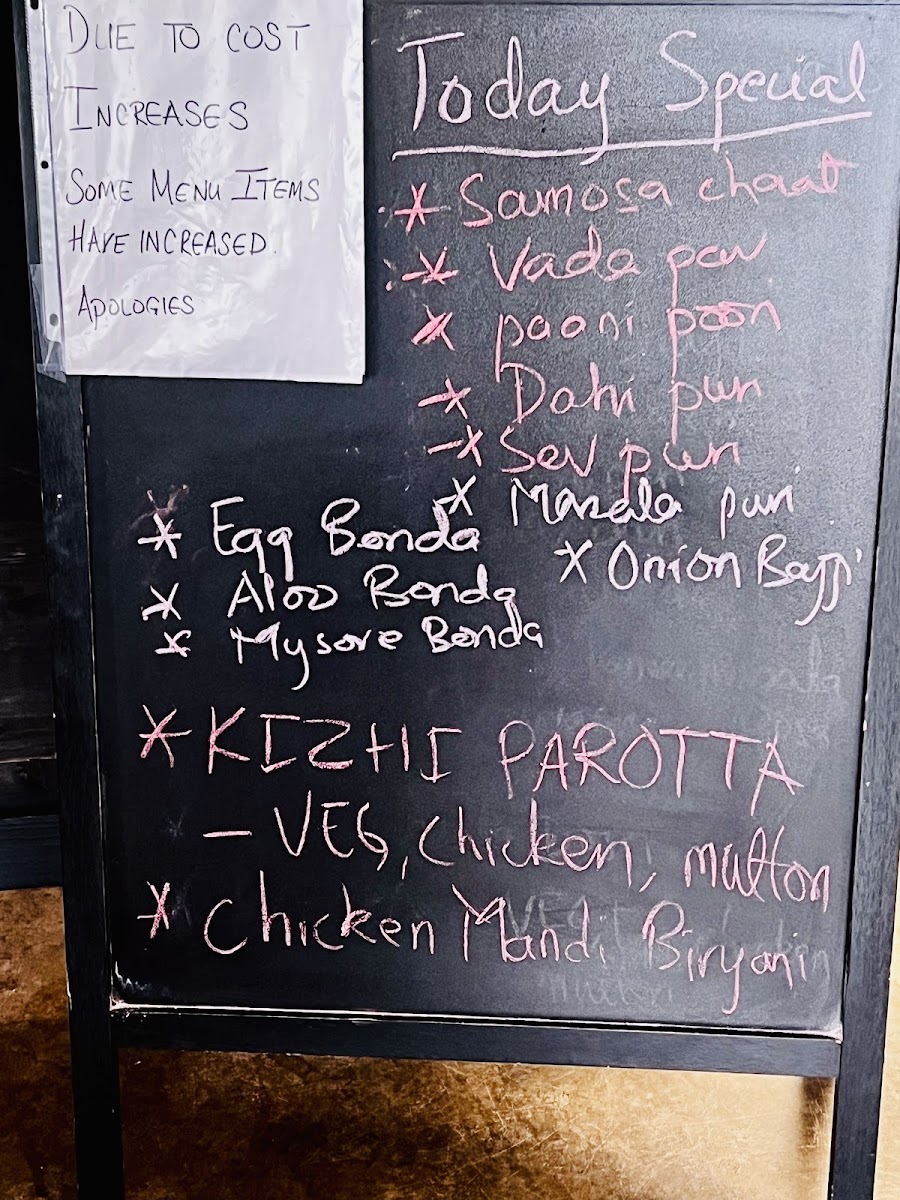 DUE TO COST
INCREASES
SOME MENU ITEMS
HAVE INCREASED.
APOLOGIES
Today Special
* Samosa chaat
* Vada pav
* paani poori
* Dahi puri
* Sev puri
* Masala puri
* Onion Bajji
* Egg Bonda
* Aloo Bonda
* Mysore Bonda
* KIZHI PAROTTA
- VEG, Chicken, mutton
* Chicken Mandi Biryani